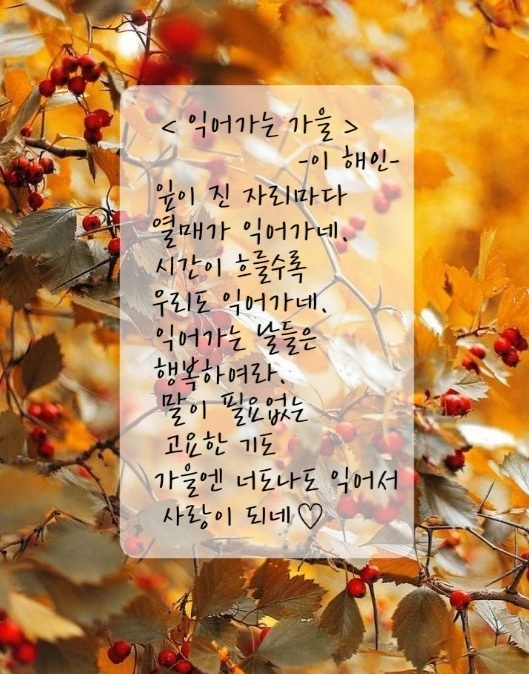 < 익어가는 가을 >
-이 해인-
잎이 진 자리마다
열매가 익어가네.
시간이 흐를수록
우리도 익어가네.
익어가는 날들은
행복하여라.
말이 필요없는
고요한 기도
가을엔 너도나도 익어서
사랑이 되네♡